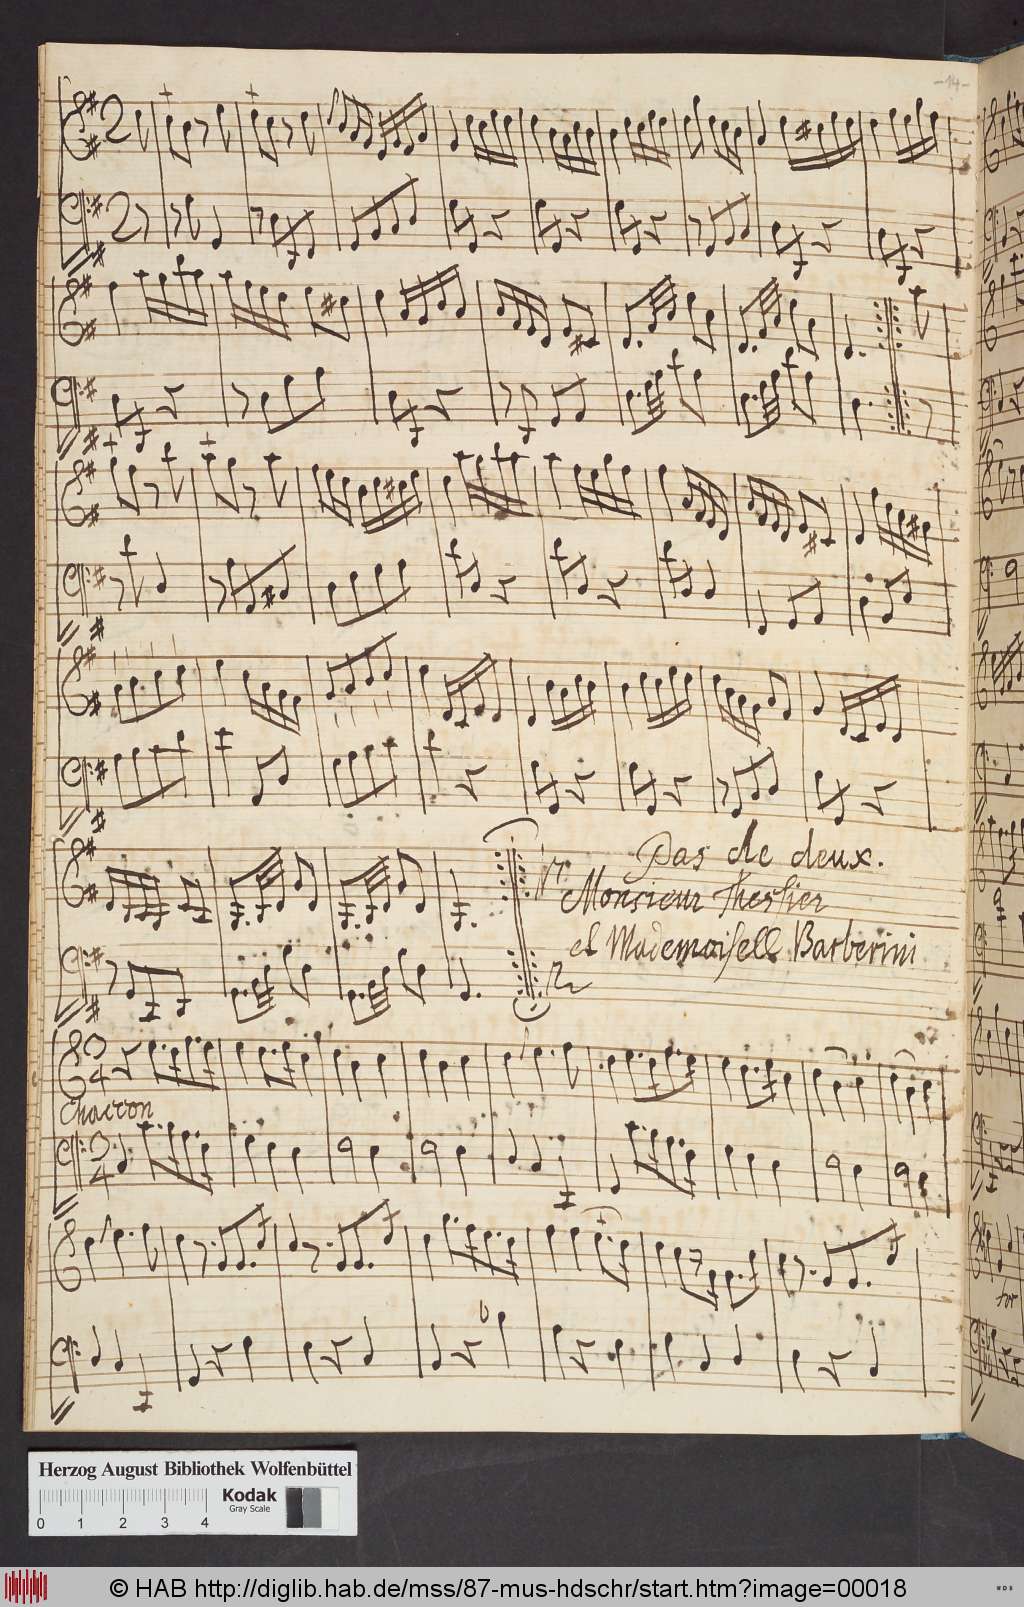 -14-
Pas de deux.
Monsieur Thessier
et Mademoisell Barberini
Chaccon
tor
Herzog August Bibliothek Wolfenbüttel
Kodak
Gray Scale
0 1 2 3 4
© HAB http://diglib.hab.de/mss/87-mus-hdschr/start.htm?image=00018
WDB